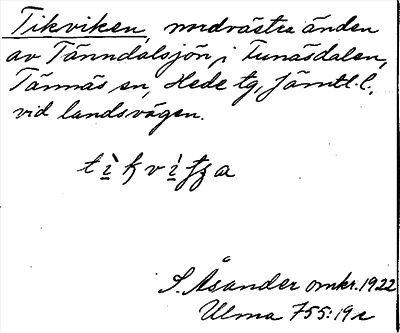 Tikviken, nordvästra änden
av Tänndalsjön i Funäsdalen,
Tännäs sn, Hede tg, Jämtl. l.,
vid landsvägen.
S. Åsander omkr. 1922
Ulma 755:19 s